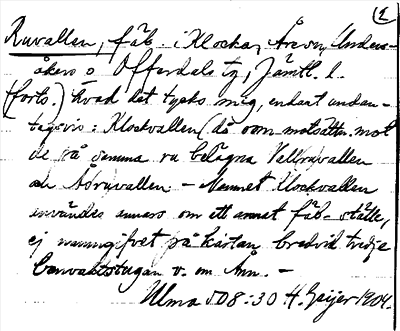 (2
Ruvallen, fäb. i Klocka, Åre sn, Unders-
åkers o Offerdals tg, Jämtl. l.
(forts.) hvad det tycks mig, endast undan-
tagsvis: Klockvallen (då som motsättn. mot
de på samma ru belägna Vallruvallen
och Åsruvallen – Namnet Klockvallen
användes annars om ett annat fäb-ställe,
ej namngifvet på kartan bredvid tredje
banvaktstugan v. om Ånn. –
Ulma 508:30 H. Geijer 1904.